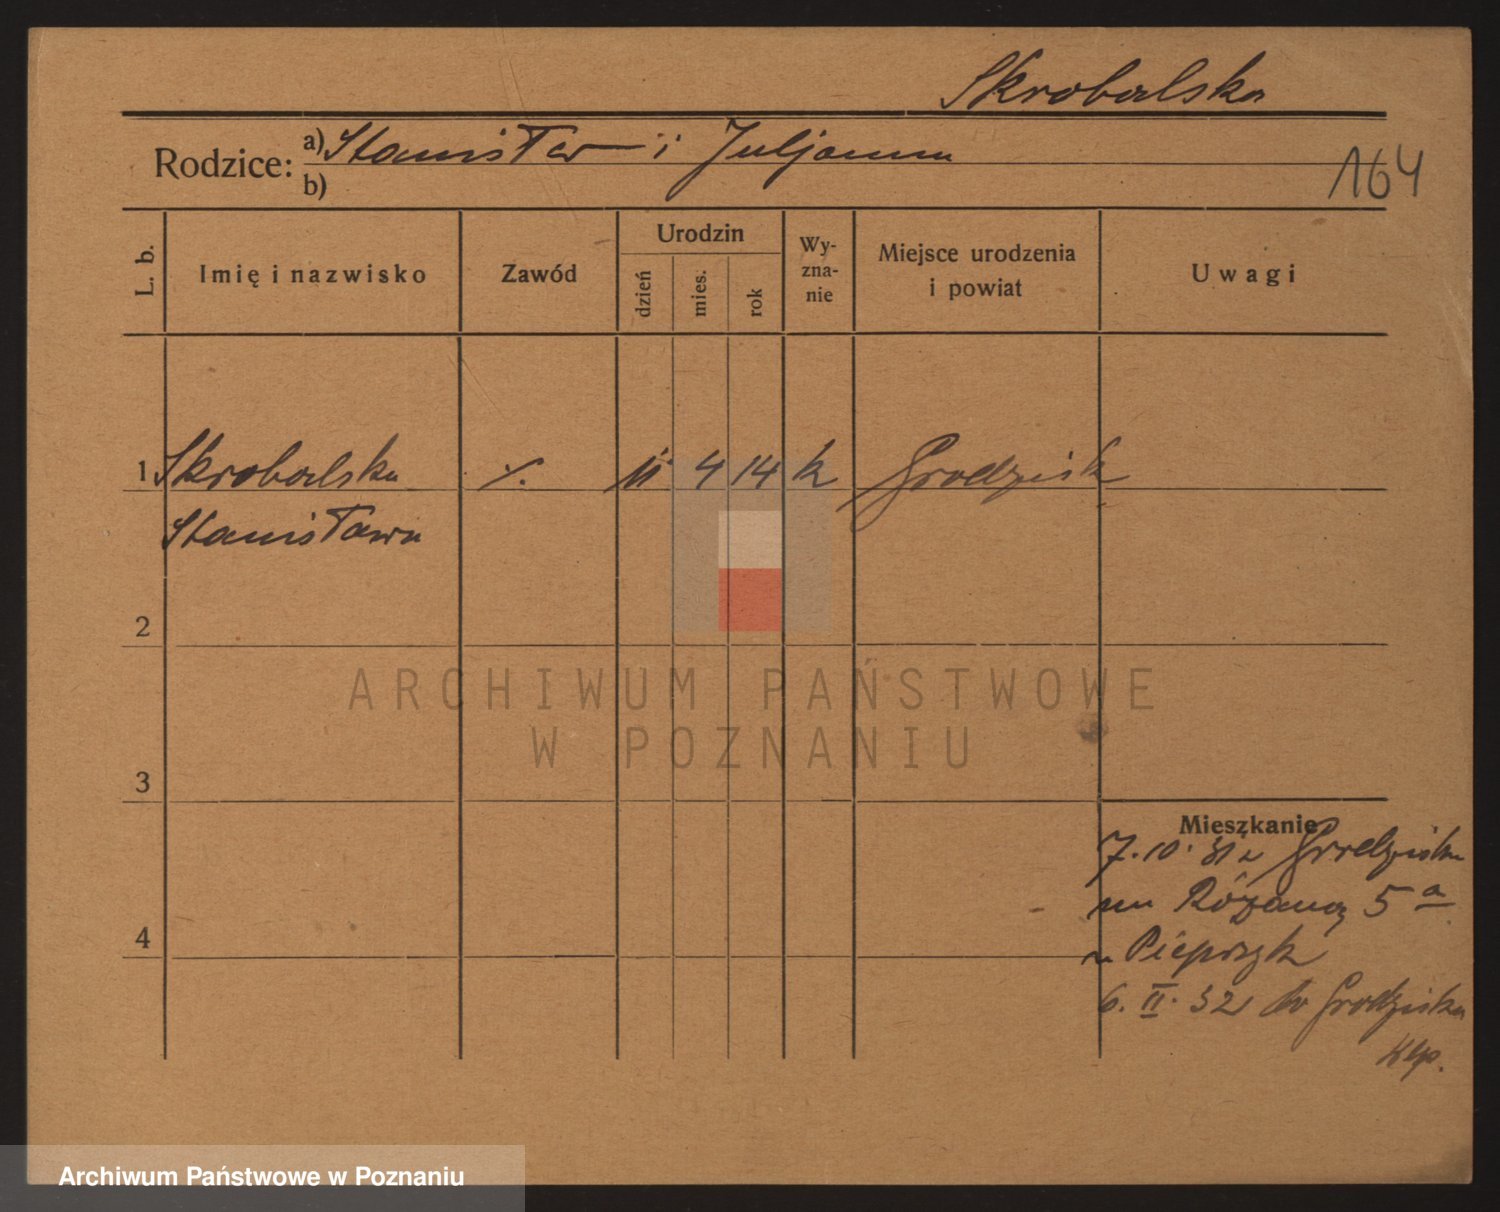 Skrobalska
Rodzice: a) Stanisław i Juljanna
b)
164
L. b.
Imię i nazwisko
Zawód
Urodzin
dzień
mies.
rok
Wy-
zna-
nie
Miejsce urodzenia
i powiat
Uwagi
1 Skrobalska ./. 11 4 14 k Grodzisk
Stanisława
2
3
4
Mieszkanie
7.10.31 z Grodziska
na Różaną 5a
u Pieprzyk
6. II. 32 do Grodziska
ARCHIWUM PAŃSTWOWE
W POZNANIU
Archiwum Państwowe w Poznaniu